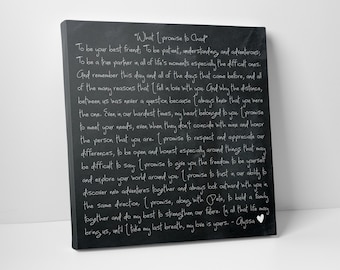 "What I promise to Chad"
To be your best friend; To be patient, understanding, and adventurous;
To be a true partner in all of life's moments especially the difficult ones.
And remember this day and all of the days that came before, and all
of the many reasons that I fell in love with you. And why the distance,
between us was never a question because I always knew that you were
the one. Even in our hardest times, my heart belonged to you. I promise
to meet your needs, even when they don't coincide with mine and honor
the person that you are. I promise to respect and appreciate our
differences, to be open and honest especially around things that may
be difficult to say. I promise to give you the freedom to be yourself
and explore your world around you. I promise to trust in our ability to
discover new adventures together and always look outward with you in
the same direction. I promise, along with to build a family
together and do my best to strengthen our future. In all that life may
bring us, until I take my last breath, my love is yours. - Alyssa